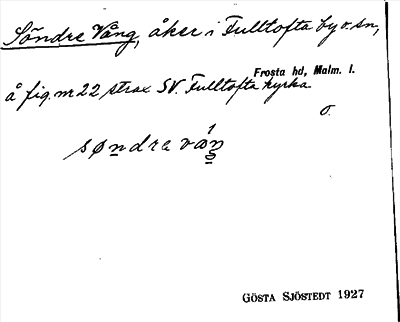 Söndre Vång, åker i Fulltofta by o. sn,
Frosta hd, Malm. l.
å fig. nr 22 strax SV. Fulltofta kyrka
O.
søndre våŋ
GÖSTA SJÖSTEDT 1927